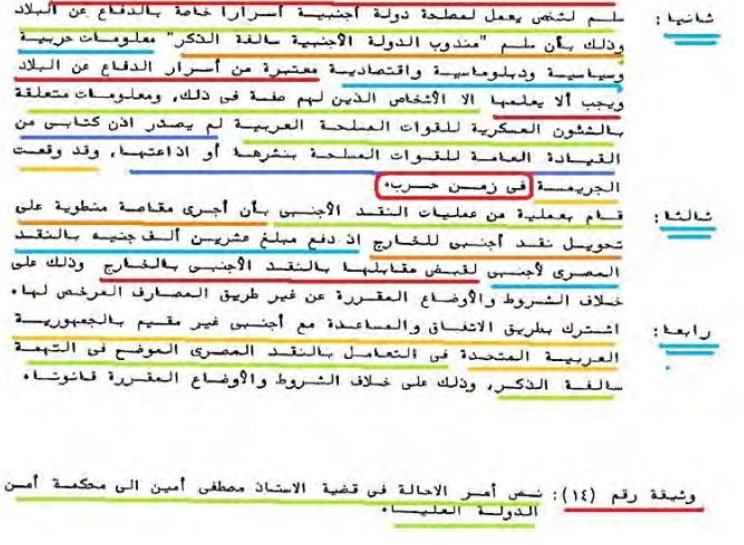 ثانيا: سلم لشخص يعمل لمصلحة دولة أجنبية أسرارا خاصة بالدفاع عن البلاد
وذلك بأن سلم "مندوب الدولة الأجنبية سالفة الذكر" معلومات حربية
وسياسية ودبلوماسية واقتصادية معتبرة من أسرار الدفاع عن البلاد
ويجب ألا يعلمها الا الأشخاص الذين لهم صفة فى ذلك، ومعلومات متعلقة
بالشئون العسكرية للقوات المسلحة العربية لم يصدر اذن كتابى من
القيادة العامة للقوات المسلحة بنشرها أو اذاعتها، وقد وقعت
الجريمة فى زمن حرب.
ثالثا: قام بعملية من عمليات النقد الأجنبى بأن أجرى مقاصة منطوية على
تحويل نقد أجنبى للخارج اذ دفع مبلغ عشرين ألف جنيه بالنقد
المصرى لأجنبى لقبض مقابلها بالنقد الأجنبى بالخارج وذلك على
خلاف الشروط والأوضاع المقررة عن غير طريق المصارف المرخص لها.
رابعا: اشترك بطريق الاتفاق والمساعدة مع أجنبى غير مقيم بالجمهورية
العربية المتحدة فى التعامل بالنقد المصرى الموضح فى التهمة
سالفة الذكر، وذلك على خلاف الشروط والأوضاع المقررة قانونا.
وثيقة رقم (١٤): نص أمر الاحالة فى قضية الاستاذ مصطفى أمين الى محكمة أمن
الدولة العليا.